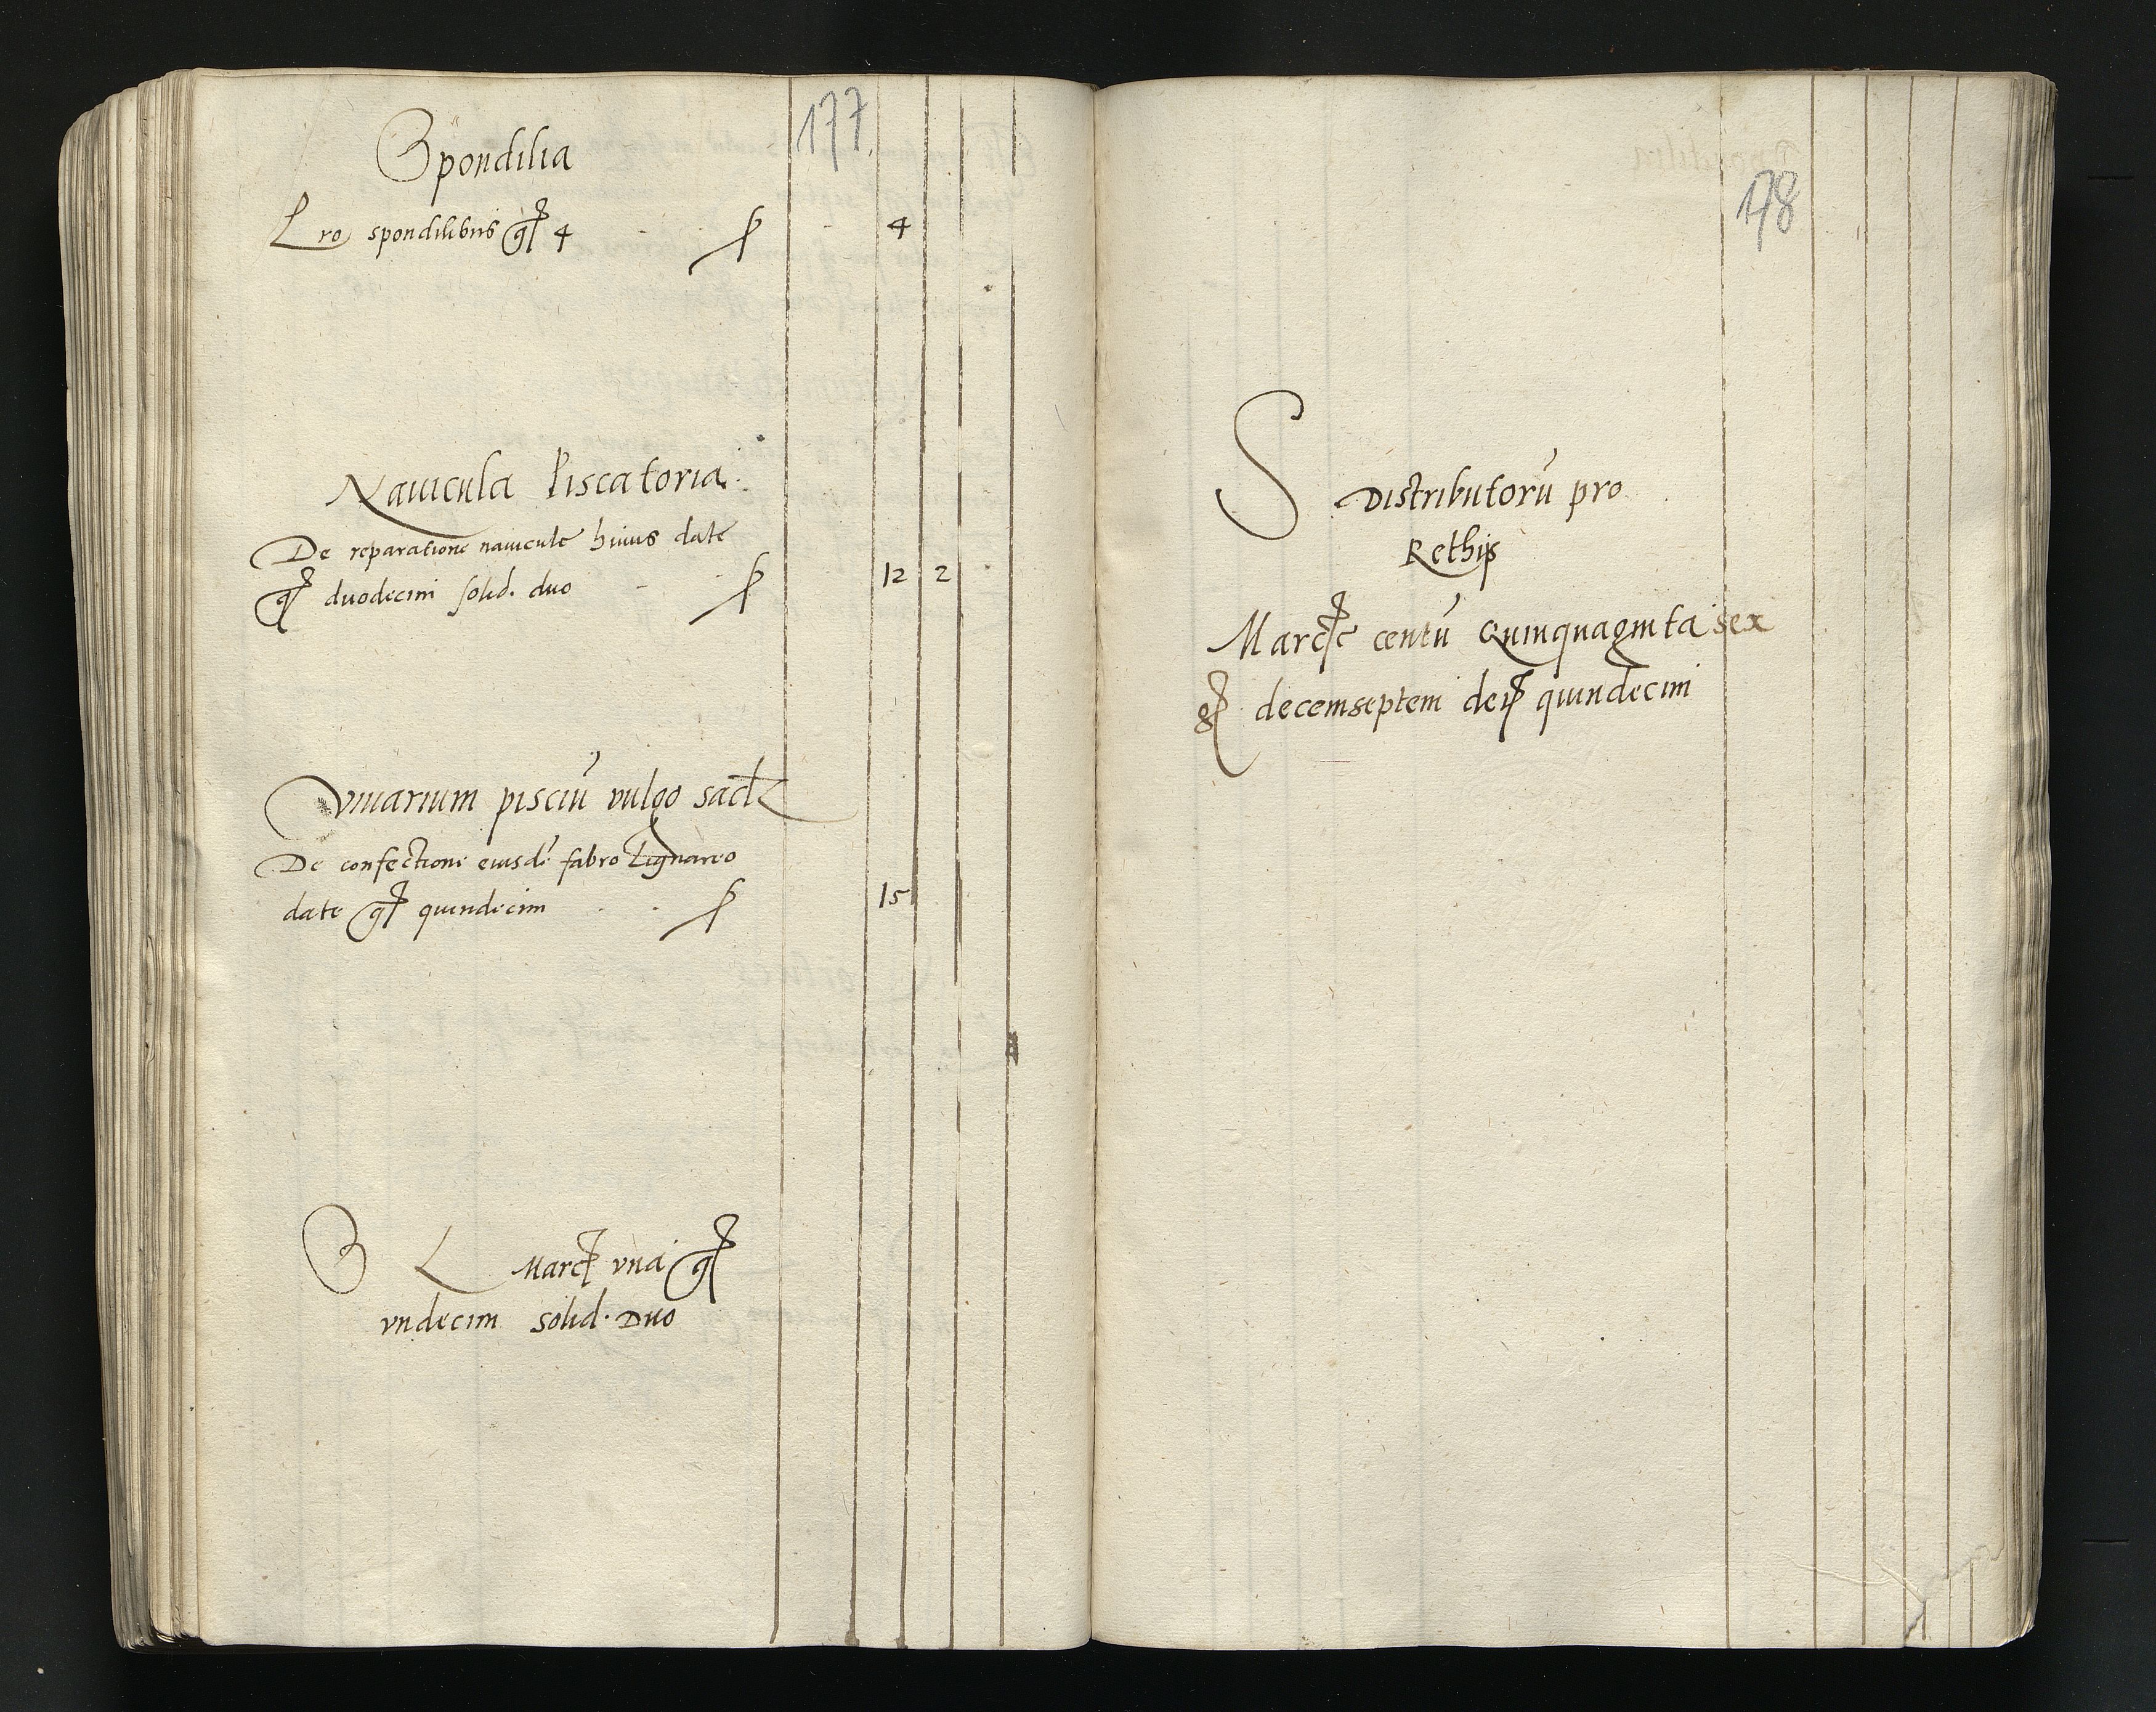 177
Spondilia
Pro spondilibus gr 4 - - f - 4
Nauicula Piscatoria
De reparatione nauicule huius date
gr duodecim solid. duo - - f 12 2
Viuarium pisciū vulgo sadz
De confectione eiusdē fabro Lignario
date gr quindecim - - f 15
Marc vna gr
vndecim solid. Duo
178
S Distributorū pro
Rethis
Marc centū Quinquaginta sex
gr decemseptem den quindecim